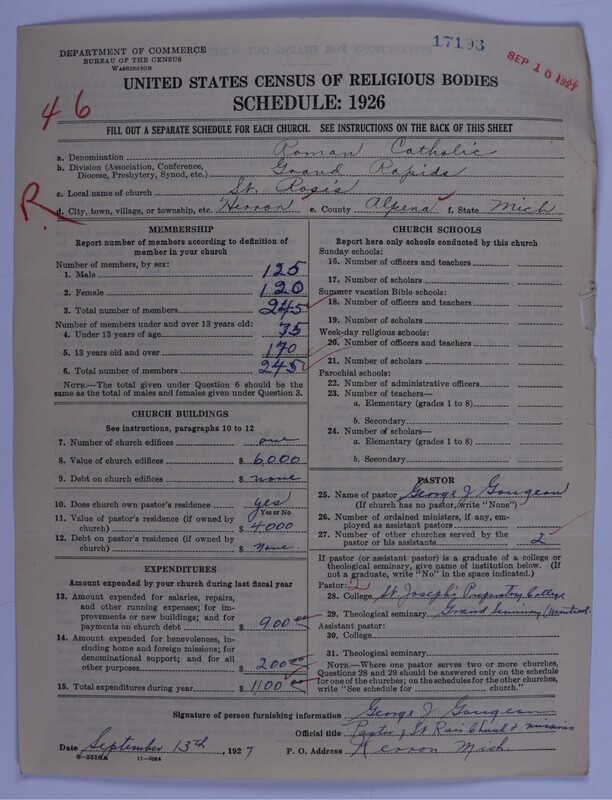 17193
SEP 16 1927
DEPARTMENT OF COMMERCE
BUREAU OF THE CENSUS
WASHINGTON
UNITED STATES CENSUS OF RELIGIOUS BODIES
SCHEDULE: 1926
46
FILL OUT A SEPARATE SCHEDULE FOR EACH CHURCH. SEE INSTRUCTIONS ON THE BACK OF THIS SHEET
a. Denomination Roman Catholic
b. Division (Association, Conference, Diocese, Presbytery, Synod, etc.) Grand Rapids
c. Local name of church St. Rosis
R
d. City, town, village, or township, etc. Herron e. County Alpena f. State Mich
MEMBERSHIP
Report number of members according to definition of
member in your church
Number of members, by sex:
1. Male 125
2. Female 120
3. Total number of members 245
Number of members under and over 13 years old:
4. Under 13 years of age 75
5. 13 years old and over 170
6. Total number of members 245
NOTE.—The total given under Question 6 should be
same as the total of males and females given under Question 3.
CHURCH BUILDINGS
See instructions, paragraphs 10 to 12
7. Number of church edifices one
8. Value of church edifices $ 6,000
9. Debt on church edifices $ none
10. Does church own pastor's residence? yes
Yes or No
11. Value of pastor's residence (if owned by
church) $ 4,000
12. Debt on pastor's residence (if owned by
church) $ none.
EXPENDITURES
Amount expended by your church during last fiscal year
13. Amount expended for salaries, repairs,
and other running expenses; for im-
provements or new buildings; and for
payments on church debt $ 900 00
14. Amount expended for benevolences, in-
cluding home and foreign missions; for
denominational support; and for all
other purposes $ 200 00
15. Total expenditures during year $ 1100 00
CHURCH SCHOOLS
Report here only schools conducted by this church
Sunday schools:
16. Number of officers and teachers
17. Number of scholars
Summer vacation Bible schools:
18. Number of officers and teachers
19. Number of scholars
Week-day religious schools:
20. Number of officers and teachers
21. Number of scholars
Parochial schools:
22. Number of administrative officers
23. Number of teachers—
a. Elementary (grades 1 to 8)
b. Secondary
24. Number of scholars—
a. Elementary (grades 1 to 8)
b. Secondary
PASTOR
25. Name of pastor George J Gougeon
(If church has no pastor, write "None")
26. Number of ordained ministers, if any, em-
ployed as assistant pastors
27. Number of other churches served by the
pastor or his assistants 2
If pastor (or assistant pastor) is a graduate of a college or
theological seminary, give name of institution below. (If
not a graduate, write "No" in the space indicated.)
Pastor: 2
28. College St Joseph's Preparatory College
29. Theological seminary Grand Seminary (Montreal
Assistant pastor:
30. College
31. Theological seminary
NOTE.—Where one pastor serves two or more churches,
Questions 28 and 29 should be answered only on the schedule
for one of the churches; on the schedules for the other churches,
write "See schedule for church."
Signature of person furnishing information George J Gougeon
Official title Pastor of St Rosis Church & missions
Date September 13th, 1927 P. O. Address Herron Mich.